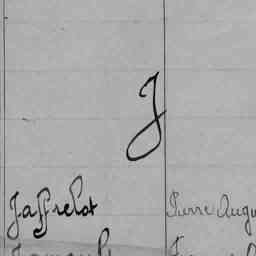 J
Jaffrelot Pierre Augu